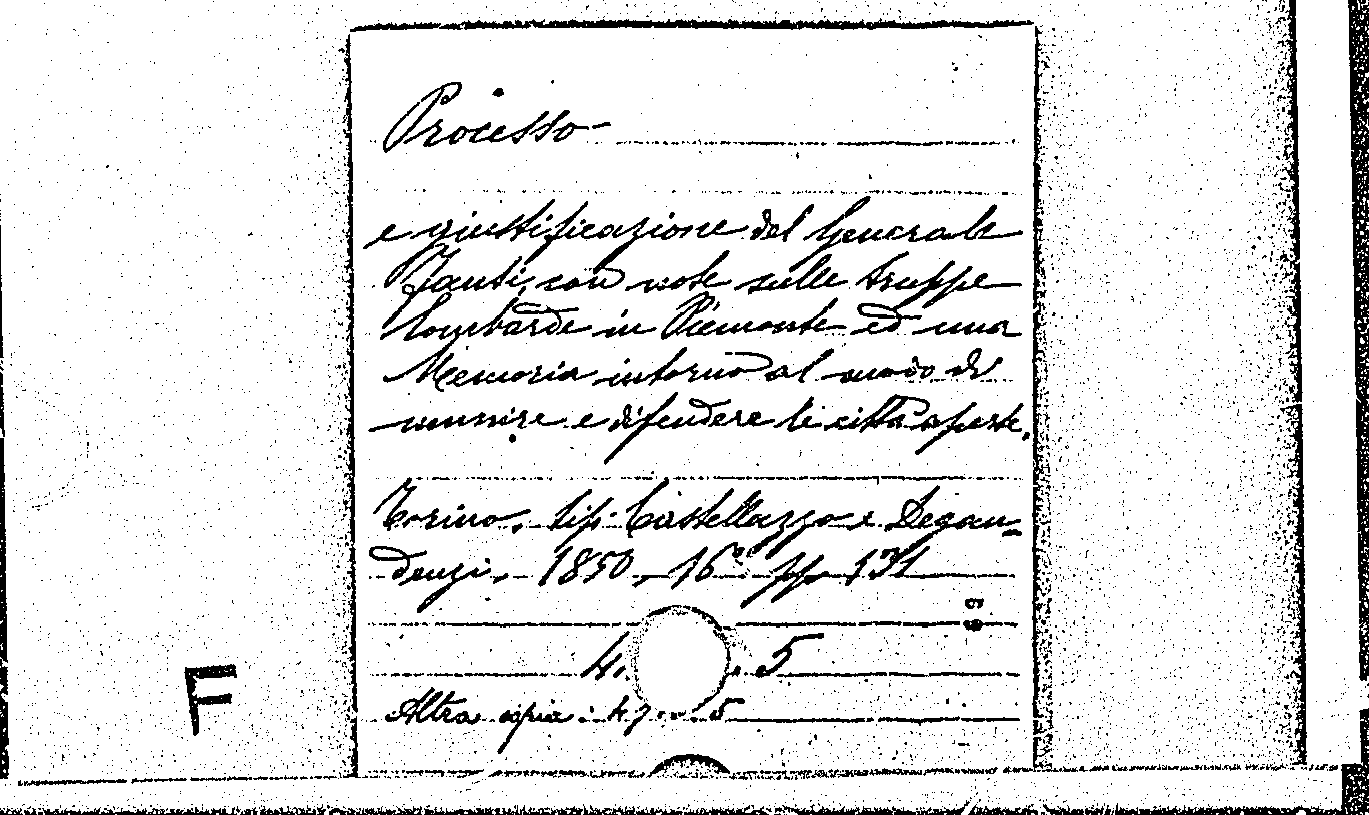 Processo
e giustificazione del Generale
Fanti, con note sulle truppe
Lombarde in Piemonte ed una
Memoria intorno al modo di
munire e difendere le città aperte.
Torino, tip. Castellazzo e Degau-
denzi, 1850, 16° pp. 131
4. . 5
Altra copia: 5
F